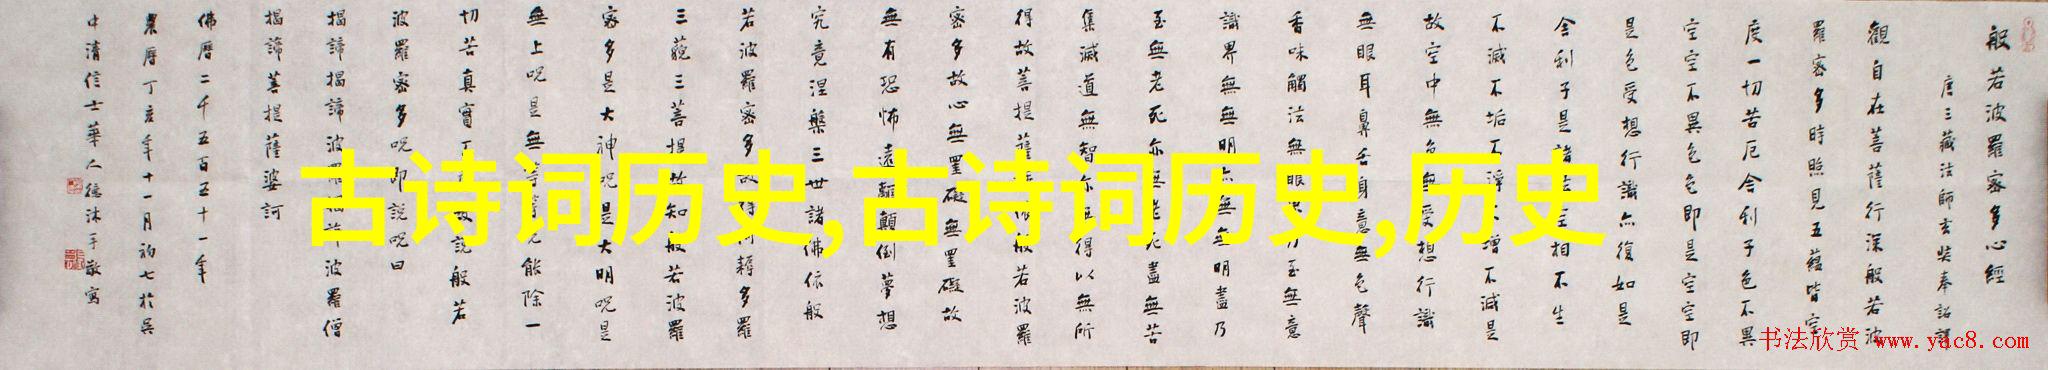 般若波羅蜜多心經
唐三藏法師玄奘奉詔譯
觀自在菩薩行深般若波
羅蜜多時照見五蘊皆空
度一切苦厄舍利子色不異
空空不異色色即是空空即
是色受想行識亦復如是
舍利子是諸法空相不生
不滅不垢不淨不增不減是
故空中無色無受想行識
無眼耳鼻舌身意無色聲
香味觸法無眼界乃至無意
識界無無明亦無無明盡乃
至無老死亦無老死盡無苦
集滅道無智亦無得以無所
得故菩提薩埵依般若波羅
蜜多故心無罣礙無罣礙故
無有恐怖遠離顛倒夢想
究竟涅槃三世諸佛依般
若波羅蜜多故得阿耨多羅
三藐三菩提故知般若波羅
蜜多是大神呪是大明呪是
無上呪是無等等呪能除一
切苦真實不虛故說般若
波羅蜜多呪即說呪曰
揭諦揭諦波羅揭諦波羅僧
揭諦菩提薩婆訶
佛曆二千五百五十一年
農曆丁亥年十一月初七於吳
中清信士華人德沐手敬寫
古诗词历史,古诗词历史,历史
书法欣赏 www.yac8.com